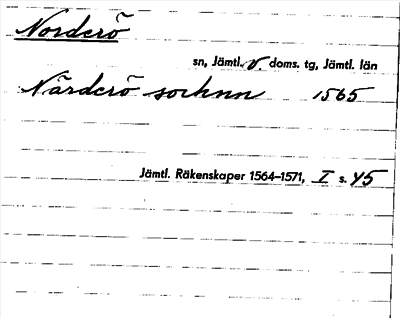 Norderö
sn, Jämtl. v. doms. tg, Jämtl. län
Närderö sochnn 1565
Jämtl. Räkenskaper 1564–1571, I s. 45